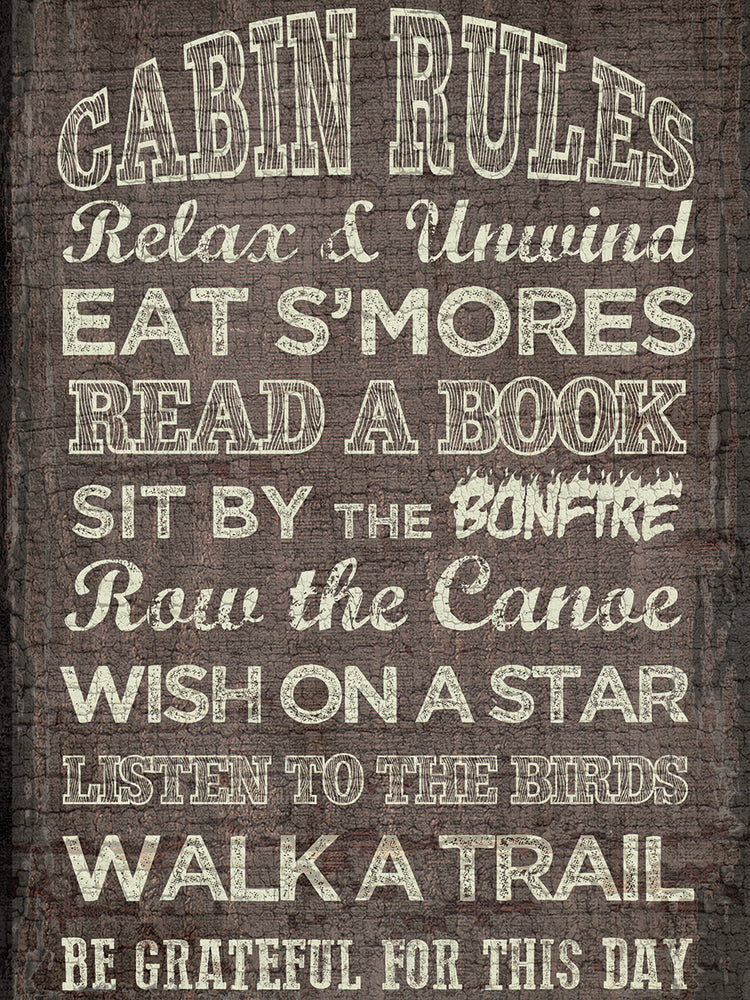 CABIN RULES
Relax & Unwind
EAT S'MORES
READ A BOOK
SIT BY THE BONFIRE
Row the Canoe
WISH ON A STAR
LISTEN TO THE BIRDS
WALK A TRAIL
BE GRATEFUL FOR THIS DAY